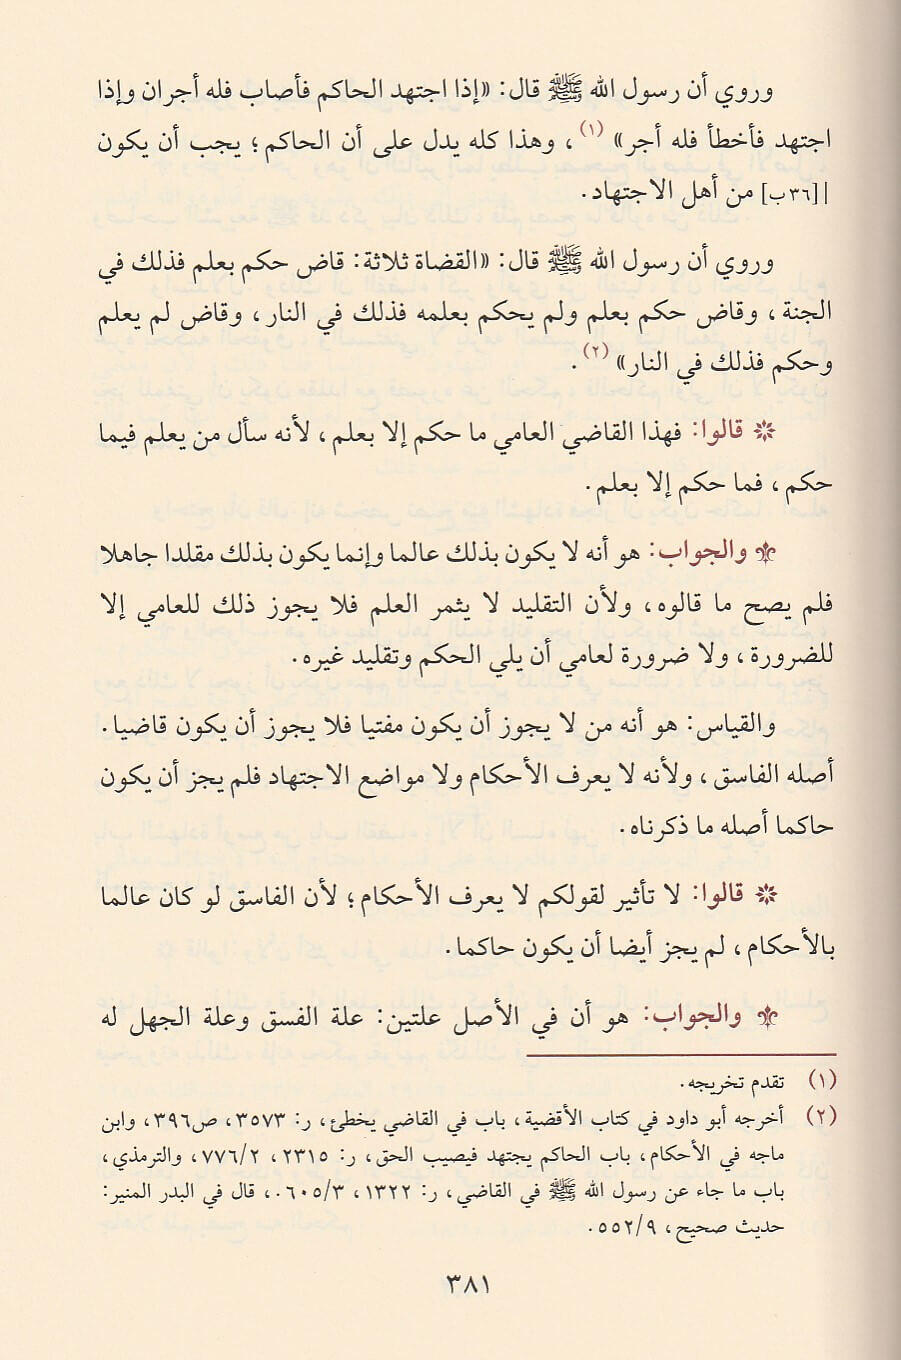 وروي أن رسول الله ﷺ قال: «إذا اجتهد الحاكم فأصاب فله أجران وإذا
اجتهد فأخطأ فله أجر» (١)، وهذا كله يدل على أن الحاكم؛ يجب أن يكون
|[٣٦ب] من أهل الاجتهاد.
وروي أن رسول الله ﷺ قال: «القضاة ثلاثة: قاض حكم بعلم فذلك في
الجنة، وقاض حكم بعلم ولم يحكم بعلمه فذلك في النار، وقاض لم يعلم
وحكم فذلك في النار» (٢).
قالوا: فهذا القاضي العامي ما حكم إلا بعلم، لأنه سأل من يعلم فيما
حكم، فما حكم إلا بعلم.
والجواب: هو أنه لا يكون بذلك عالما وإنما يكون بذلك مقلدا جاهلا
فلم يصح ما قالوه، ولأن التقليد لا يثمر العلم فلا يجوز ذلك للعامي إلا
للضرورة، ولا ضرورة لعامي أن يلي الحكم وتقليد غيره.
والقياس: هو أنه من لا يجوز أن يكون مفتيا فلا يجوز أن يكون قاضيا.
أصله الفاسق، ولأنه لا يعرف الأحكام ولا مواضع الاجتهاد فلم يجز أن يكون
حاكما أصله ما ذكرناه.
قالوا: لا تأثير لقولكم لا يعرف الأحكام؛ لأن الفاسق لو كان عالما
بالأحكام، لم يجز أيضا أن يكون حاكما.
والجواب: هو أن في الأصل علتين: علة الفسق وعلة الجهل له
(١) تقدم تخريجه.
(٢) أخرجه أبو داود في كتاب الأقضية، باب في القاضي يخطئ، ر: ٣٥٧٣، ص٣٩٦، وابن
ماجه في الأحكام، باب الحاكم يجتهد فيصيب الحق، ر: ٢٣١٥، ٧٧٦/٢، والترمذي،
باب ما جاء عن رسول الله ﷺ في القاضي، ر: ١٣٢٢، ٦٠٥/٣.، قال في البدر المنير:
حديث صحيح، ٥٥٢/٩.
٣٨١